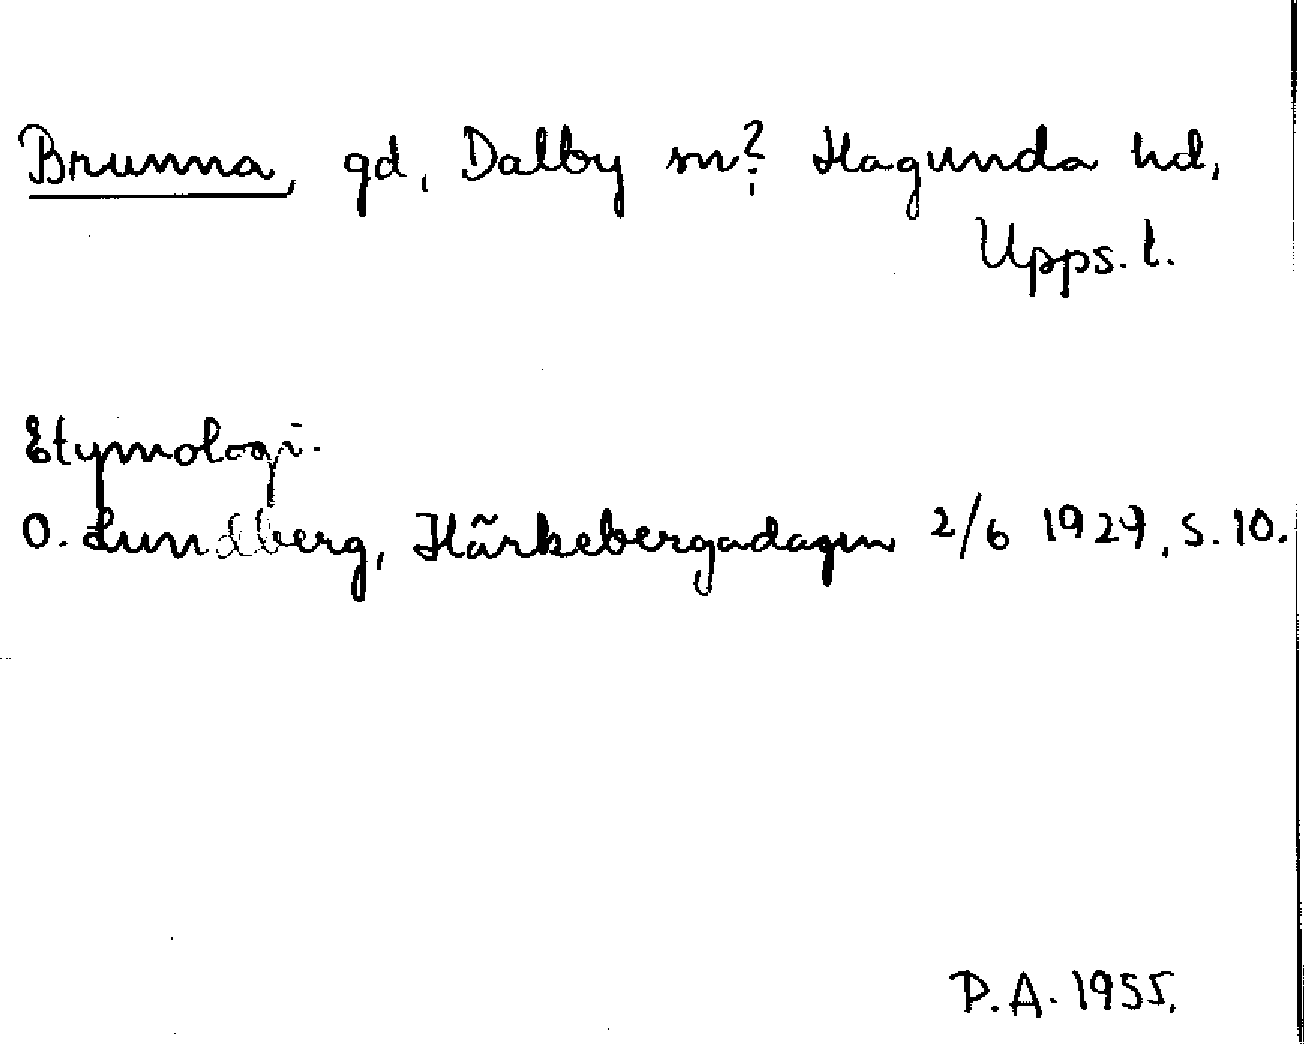 Brunna, gd, Dalby sn? Hagunda hd,
Upps. l.
Etymologi.
O. Lundberg, Härkebergadagen 2/6 1929, s. 10.
P.A. 1955.